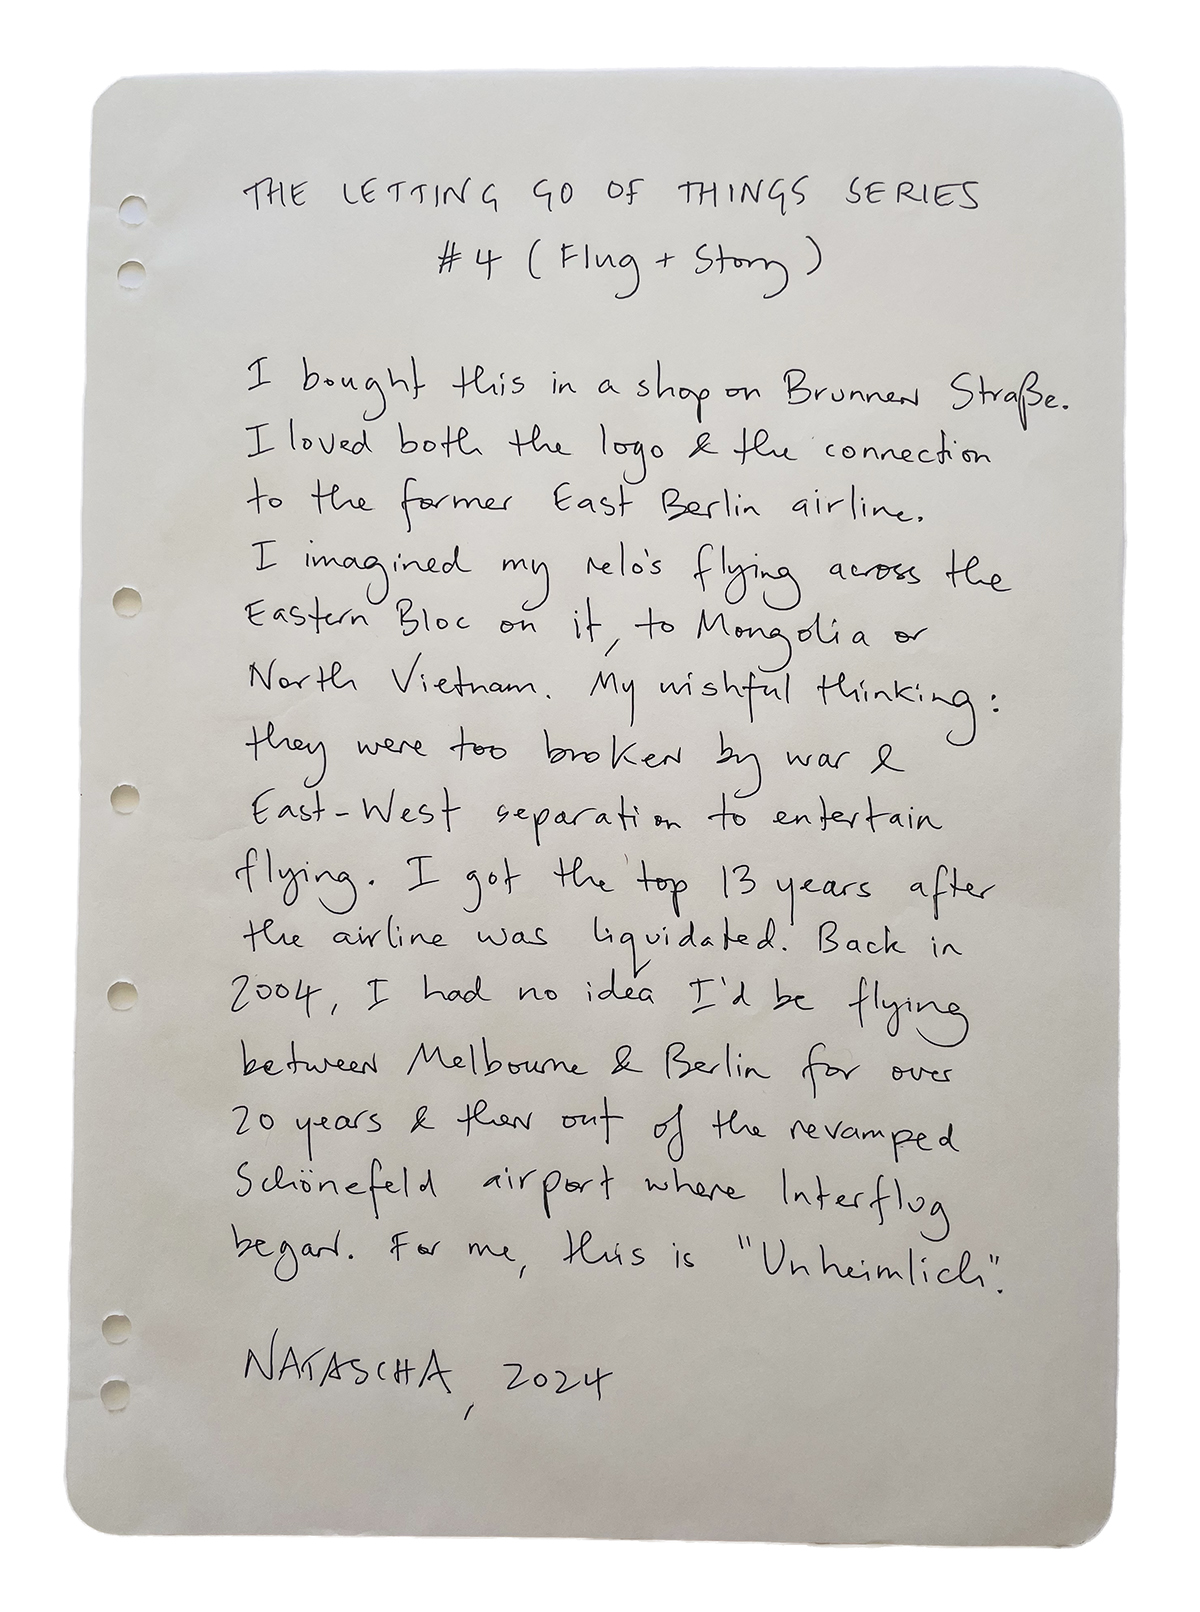 THE LETTING GO OF THINGS SERIES
#4 (Flug + Story)
I bought this in a shop on Brunnen Straße.
I loved both the logo & the connection
to the former East Berlin airline.
I imagined my relo's flying across the
Eastern Bloc on it, to Mongolia or
North Vietnam. My wishful thinking:
they were too broken by war &
East-West separation to entertain
flying. I got the top 13 years after
the airline was liquidated. Back in
2004, I had no idea I'd be flying
between Melbourne & Berlin for over
20 years & then out of the revamped
Schönefeld airport where Interflug
began. For me, this is "Unheimlich".
NATASCHA, 2024